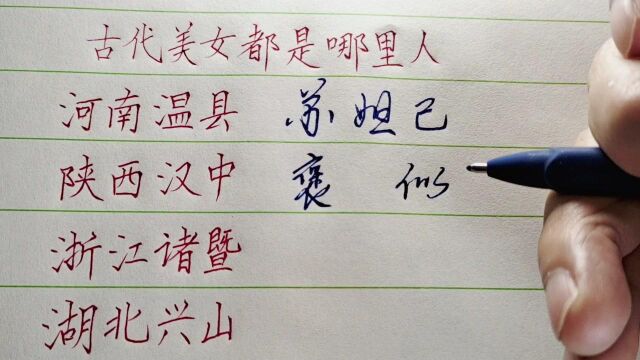 古代美女都是哪里人
河南温县 苏妲己
陕西汉中 褒似
浙江诸暨
湖北兴山